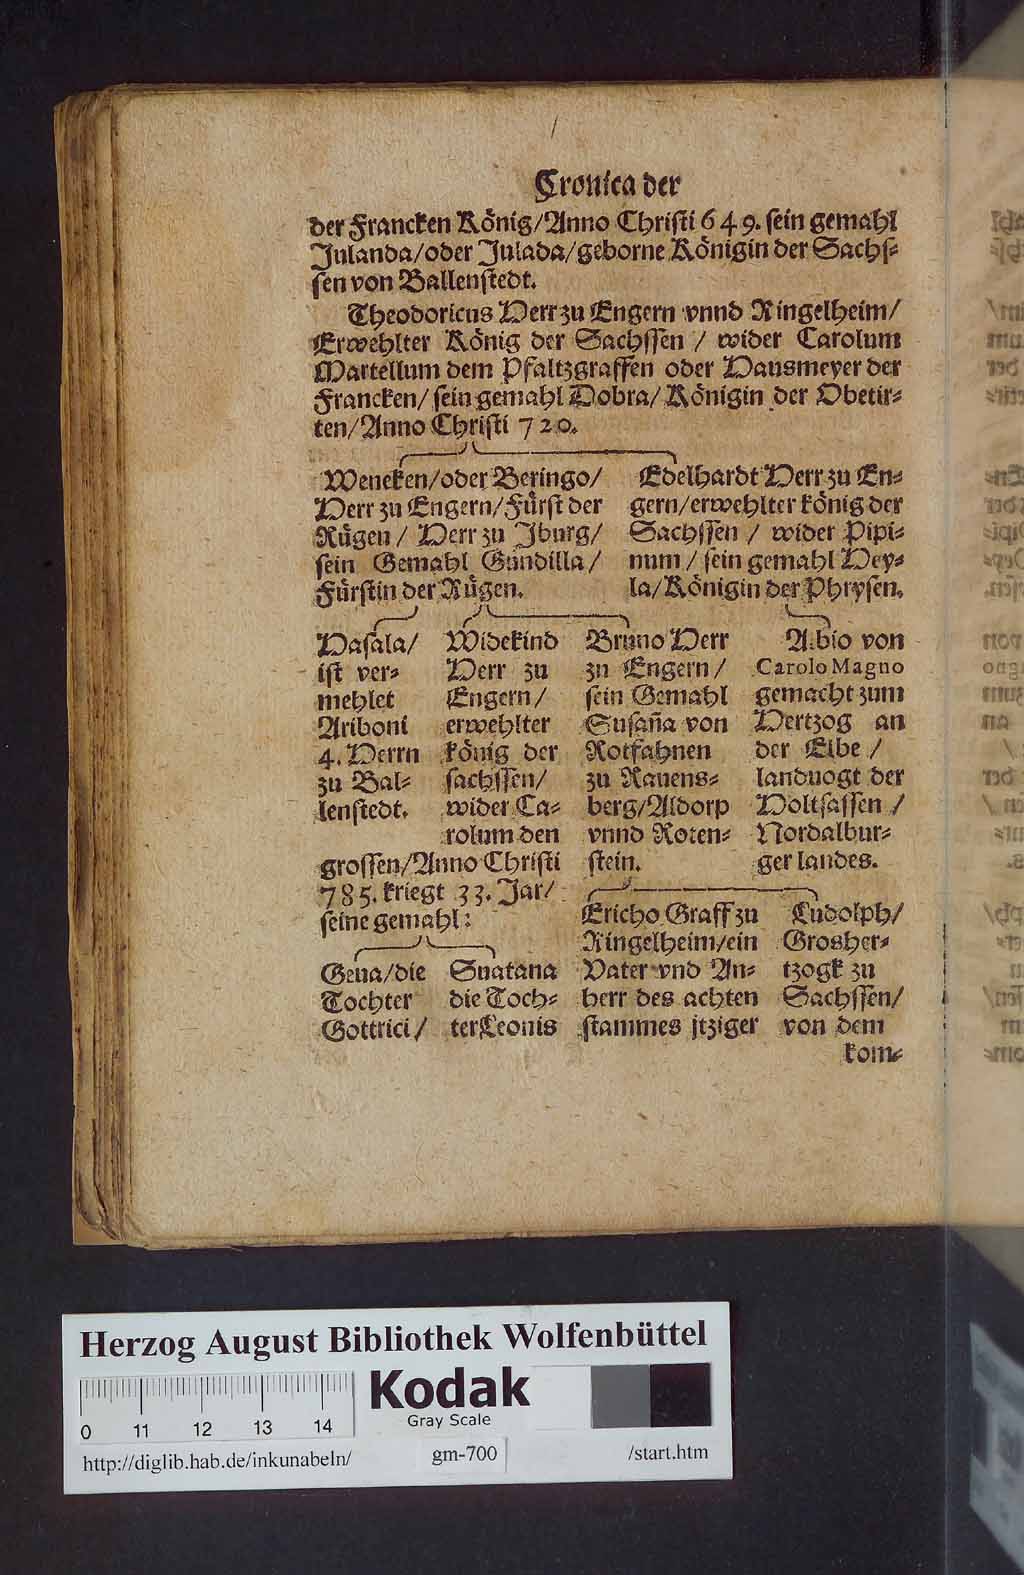 Cronica der
der Francken König/Anno Christi 649. sein gemahl
Julanda/oder Julada/geborne Königin der Sachs⸗
sen von Ballenstedt.
Theodoricus Herr zu Engern vnnd Ringelheim/
Erwehlter König der Sachssen / wider Carolum
Martellum dem Pfaltzgraffen oder Hausmeyer der
Francken/ sein gemahl Dobra/ Königin der Obetir⸗
ten/Anno Christi 720.
Weneken/oder Beringo/
Herr zu Engern/Fürst der
Rügen / Herr zu Jburg/
sein Gemahl Gundilla /
Fürstin der Rügen.
Edelhardt Herr zu En⸗
gern/erwehlter könig der
Sachssen / wider Pipi⸗
num / sein gemahl Hey⸗
la/Königin der Phrysen.
Hasala/
ist ver⸗
mehlet
Ariboni
4. Herrn
zu Bal⸗
lenstedt.
Widekind
Herr zu
Engern/
erwehlter
könig der
sachssen/
wider Ca⸗
rolum den
grossen/Anno Christi
785. kriegt 33. Jar/
seine gemahl:
Geua/die
Tochter
Gottrici/
Suatana
die Toch⸗
ter Leonis
Bruno Herr
zu Engern /
sein Gemahl
Susaña von
Rotfahnen
zu Rauens⸗
berg/Aldorp
vnnd Roten⸗
stein.
Albio von
Carolo Magno
gemacht zum
Hertzog an
der Elbe /
landuogt der
Holtsassen /
Nordalbur⸗
ger landes.
Ericho Graff zu
Ringelheim/ein
Vater vnd An⸗
herr des achten
stammes jtziger
Ludolph/
Grosher⸗
tzogk zu
Sachssen/
von dem
kom⸗
Herzog August Bibliothek Wolfenbüttel
Kodak
Gray Scale
0 11 12 13 14
http://diglib.hab.de/inkunabeln/ gm-700 /start.htm